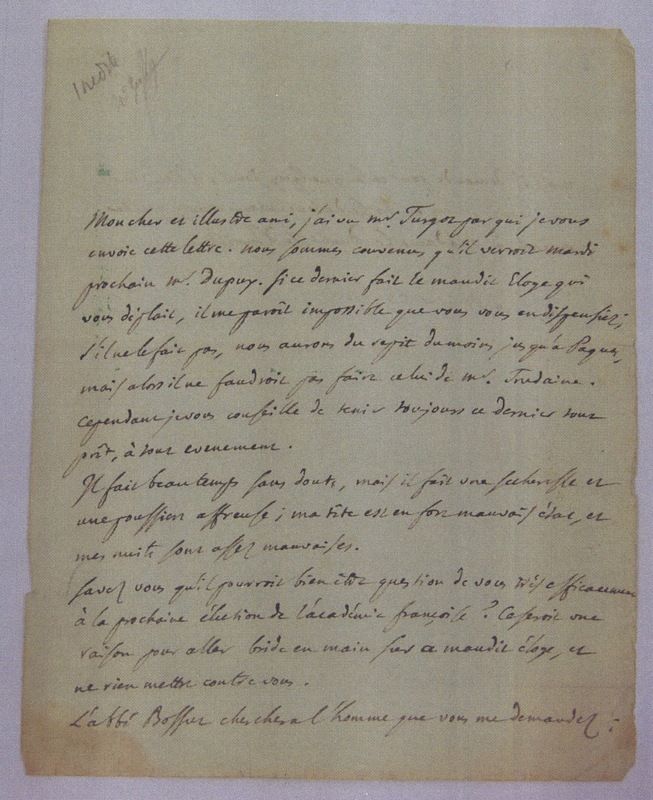 Inédite
Mon cher et illustre ami, j'ai vu mr. Turgot par qui je vous
envoie cette lettre. nous sommes convenus qu'il verroit mardi
prochain mr. Dupuy. Si ce dernier fait le maudit Eloge qui
vous déplait, il me paroît impossible que vous vous en dispensiez;
S'il ne le fait pas, nous aurons du repit du moins jusqu'à Paques,
mais alors il ne faudroit pas faire celui de mr. Trudaine.
Cependant je vous conseille de tenir toujours ce dernier tout
prêt, à tout evenement.
Il fait beau temps sans doute, mais il fait une secheresse et
une poussiere affreuse; ma tête est en fort mauvais état, et
mes nuits sont assez mauvaises.
Savez vous qu'il pourroit bien être question de vous très efficacement
à la prochaine élection de l'académie françoise? Ce seroit une
raison pour aller bride en main sur ce maudit éloge, et
ne rien mettre contre vous.
L'abbé Bossut cherchera l'homme que vous me demandez;